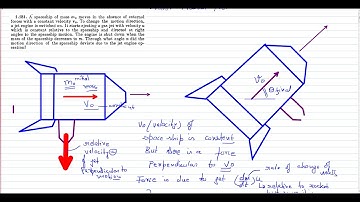 1.184. A spaceship of mass m₀ moves in the absence of external
forces with a constant velocity v₀. To change the motion direction,
a jet engine is switched on. It starts ejecting a gas jet with velocity u
which is constant relative to the spaceship and directed at right
angles to the spaceship motion. The engine is shut down when the
mass of the spaceship decreases to m. Through what angle α did the
motion direction of the spaceship deviate due to the jet engine op-
eration?
m₀ initial
mass
V₀
V₀
relative
velocity
of jet
Perpendicular to
motion
V₀ (velocity) of
space ship is constant
But there is a force
Perpendicular to V₀
Force is due to jet
rate of change of
relative to rocket